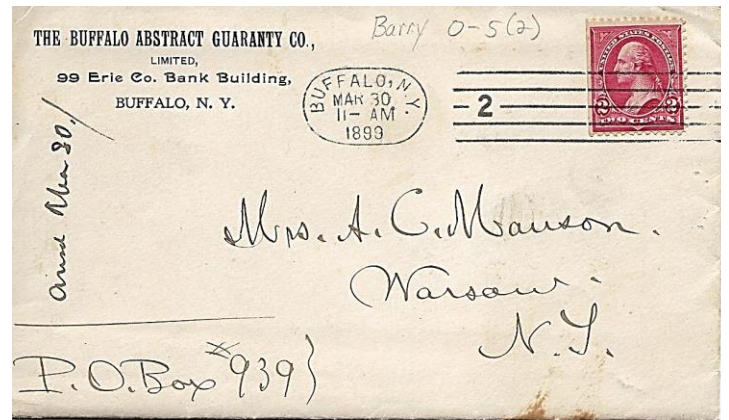 Barry O-5(2)
THE BUFFALO ABSTRACT GUARANTY CO.,
LIMITED,
99 Erie Co. Bank Building,
BUFFALO, N. Y.
BUFFALO, N.Y.
MAR 30
11-AM
1899
2
UNITED STATES POSTAGE
2 2
TWO CENTS
Mar 30/
Mrs. A. C. Manson.
Warsaw.
N.Y.
P.O. Box #939}